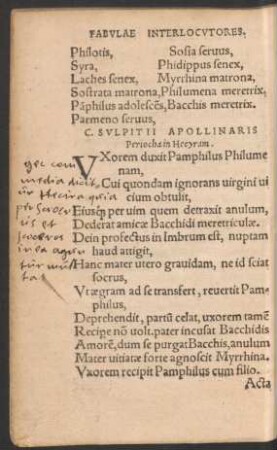 FABVLAE INTERLOCVTORES.
Philotis, Sosia seruus,
Syra, Phidippus senex,
Laches senex, Myrrhina matrona,
Sostrata matrona, Philumena meretrix.
Pāphilus adolescēs, Bacchis meretrix.
Parmeno seruus,
C. SVLPITII APOLLINARIS
Periocha in Hecyram.
VXorem duxit Pamphilus Philume
nam,
Cui quondam ignorans uirgini ui
cium obtulit,
Eiusq́; per uim quem detraxit anulum,
Dederat amicæ Bacchidi meretriculæ.
Dein profectus in Imbrum est, nuptam
haud attigit,
Hanc mater utero grauidam, ne id sciat
socrus,
Vt ægram ad se transfert, reuertit Pam-
philus,
Deprehendit, partū celat, uxorem tamē
Recipe nō uolt. pater incusat Bacchidis
Amorē, dum se purgat Bacchis, anulum
Mater uitiatæ forte agnoscit Myrrhina.
Vxorem recipit Pamphilus cum filio.
Acta
media